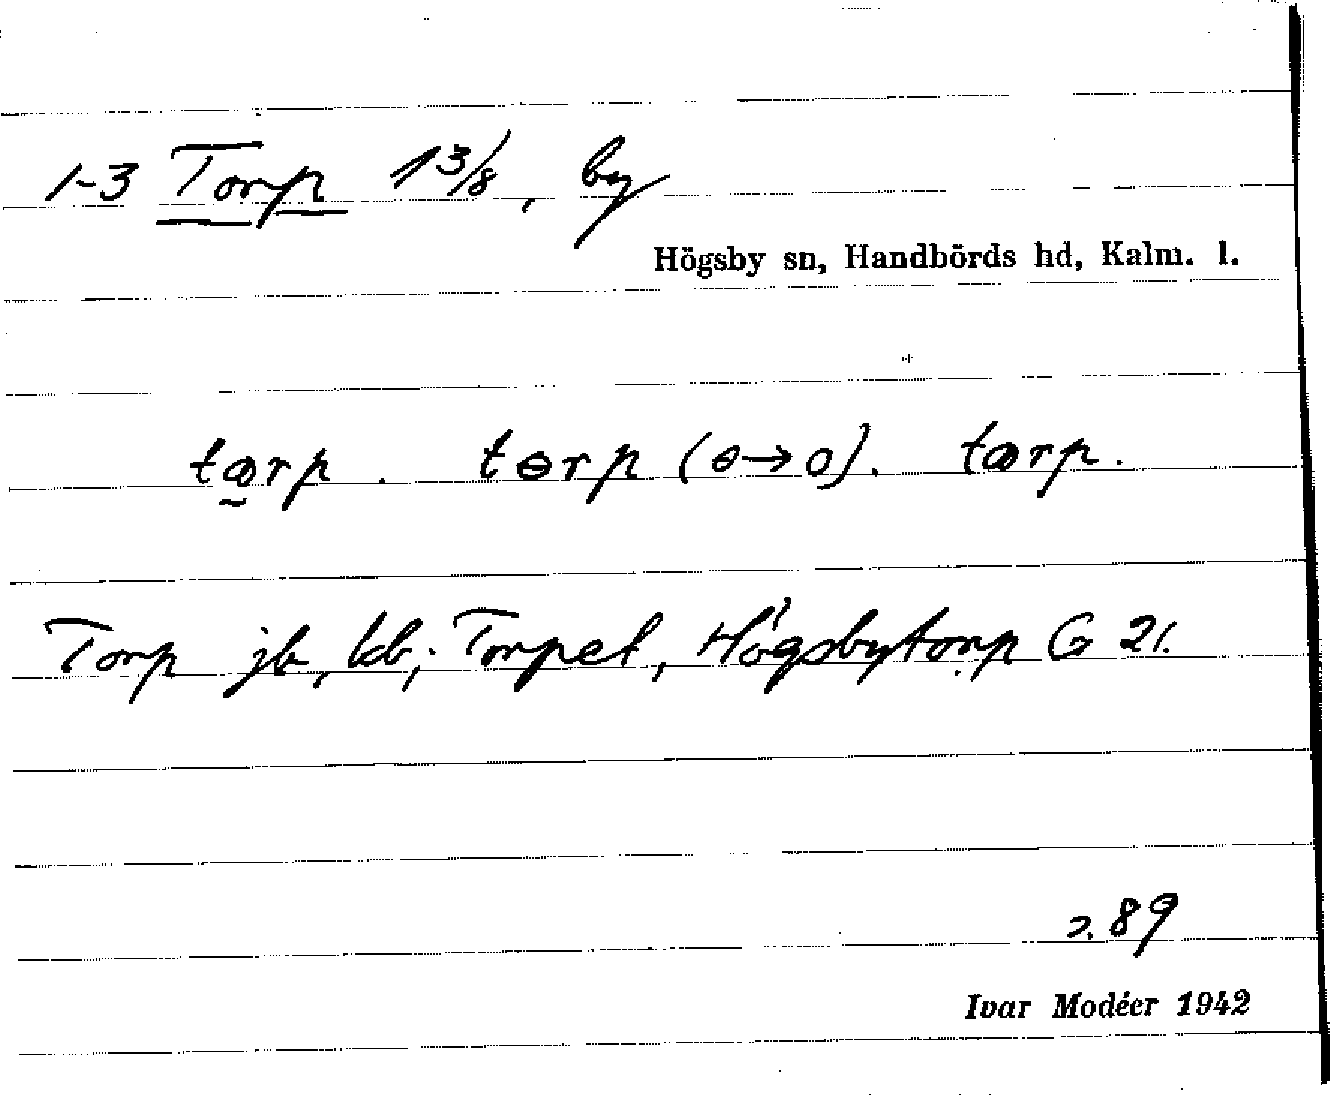 1-3 Torp 1 3/8, by
Högsby sn, Handbörds hd, Kalm. l.
tærp. tɵrp (ɵ→o). tærp.
Torp jb, kb; Torpet, Högsbytorp G 21.
s. 89
Ivar Modéer 1942